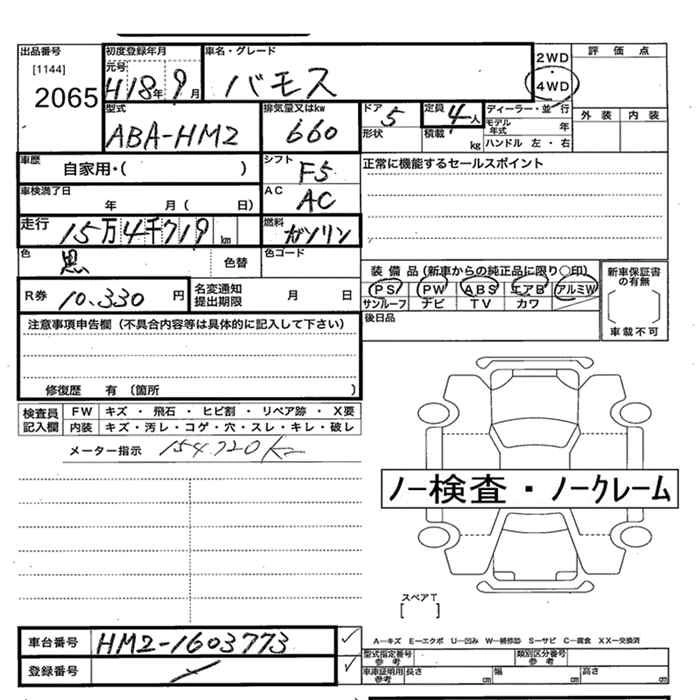 出品番号 初度登録年月 車名・グレード 評価点
[1144] 元号 H18年 9月 バモス 2WD
2065 4WD
型式 排気量又はkw ドア 5 定員 4人 ディーラー・並行 外装 内装
ABA-HM2 660 形状 積載 kg モデル年式 年
ハンドル 左・右
車歴 自家用・( ) シフト F5 正常に機能するセールスポイント
車検満了日 年 月( 日) AC AC
走行 15万4千719km 燃料 ガソリン
色 黒 色替 色コード
装備品(新車からの純正品に限り○印) 新車保証書の有無
R券 10.330円 名変通知提出期限 月 日 PS PW ABS エアB アルミW
サンルーフ ナビ TV カワ [ ]
注意事項申告欄(不具合内容等は具体的に記入して下さい) 後日品 車載不可
修復歴 有 (箇所 )
検査員記入欄 FW キズ・飛石・ヒビ割・リペア跡・X要
内装 キズ・汚レ・コゲ・穴・スレ・キレ・破レ
メーター指示 154.720km
ノー検査・ノークレーム
スペアT
[ ]
車台番号 HM2-1603773 ✓ A—キズ E—エクボ U—凹み W—補修跡 S—サビ C—腐食 XX—交換済
型式指定番号 参考 類別区分番号 参考
登録番号 ✓ 車庫証明用 参考 長さ cm 幅 cm 高さ cm